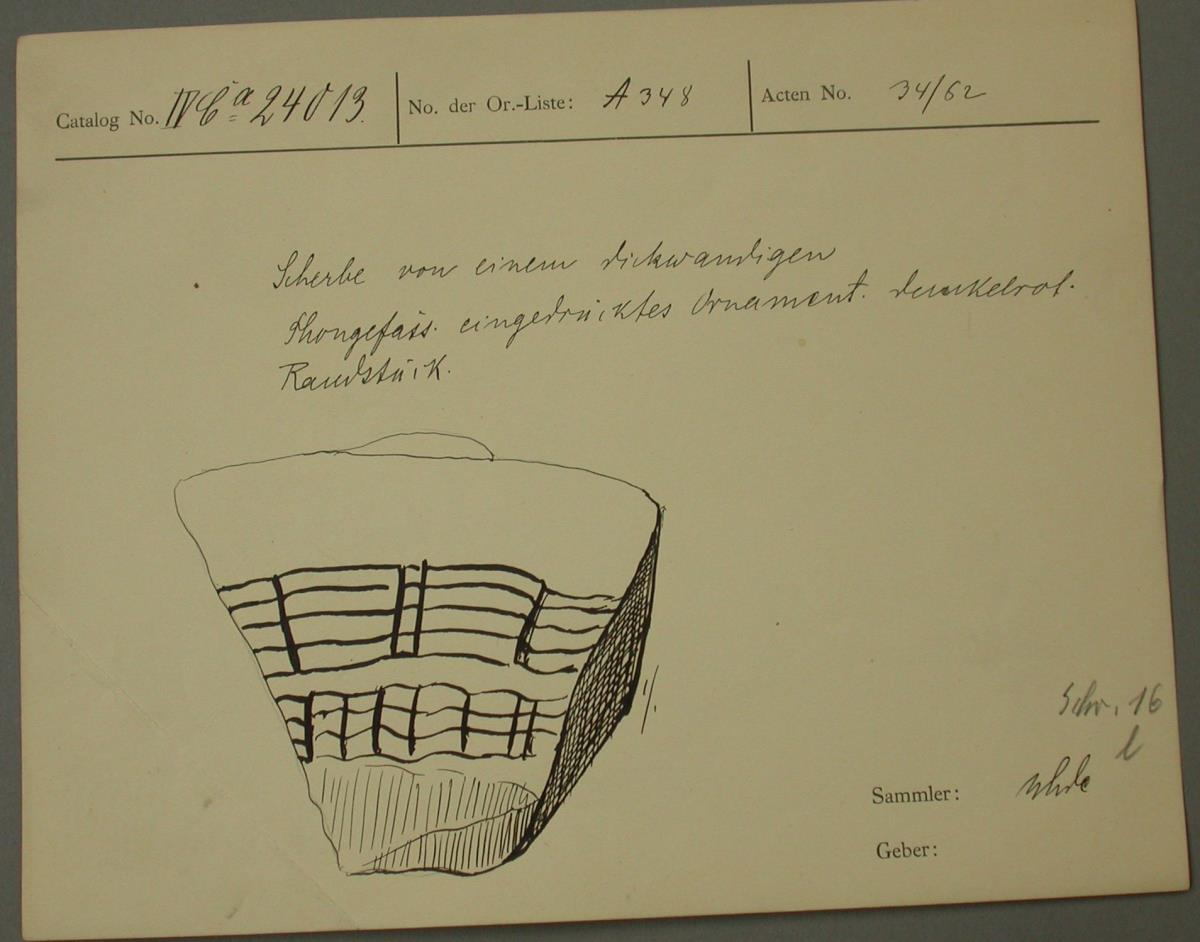 Catalog No. IV Ca 24013. No. der Or.-Liste: A 348 Acten No. 34/62
Scherbe von einem dickwandigen
Thongefäss. eingedrücktes Ornament. dunkelrot.
Randstück.
1/1.
Schr. 16
l
Sammler: Uhde
Geber: